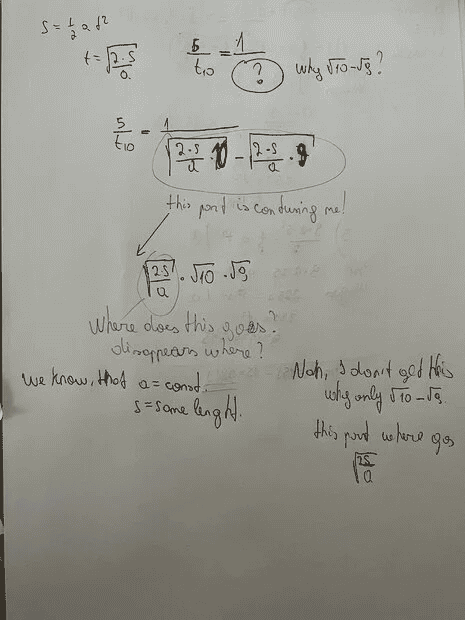 S = 1/2 a t²
t = √(2·S/a)
5/t₁₀ = 1/? why √10 - √9?
5/t₁₀ = 1/(√(2·S/a · 10) - √(2·S/a · 9))
this part is confusing me!
√(2S/a) · √10 · √9
Where does this goes?
disappears where?
We know, that a = const.
s = same lenght.
Nah, I don't get this
why only √10 - √9.
this part where goes
√(2S/a)